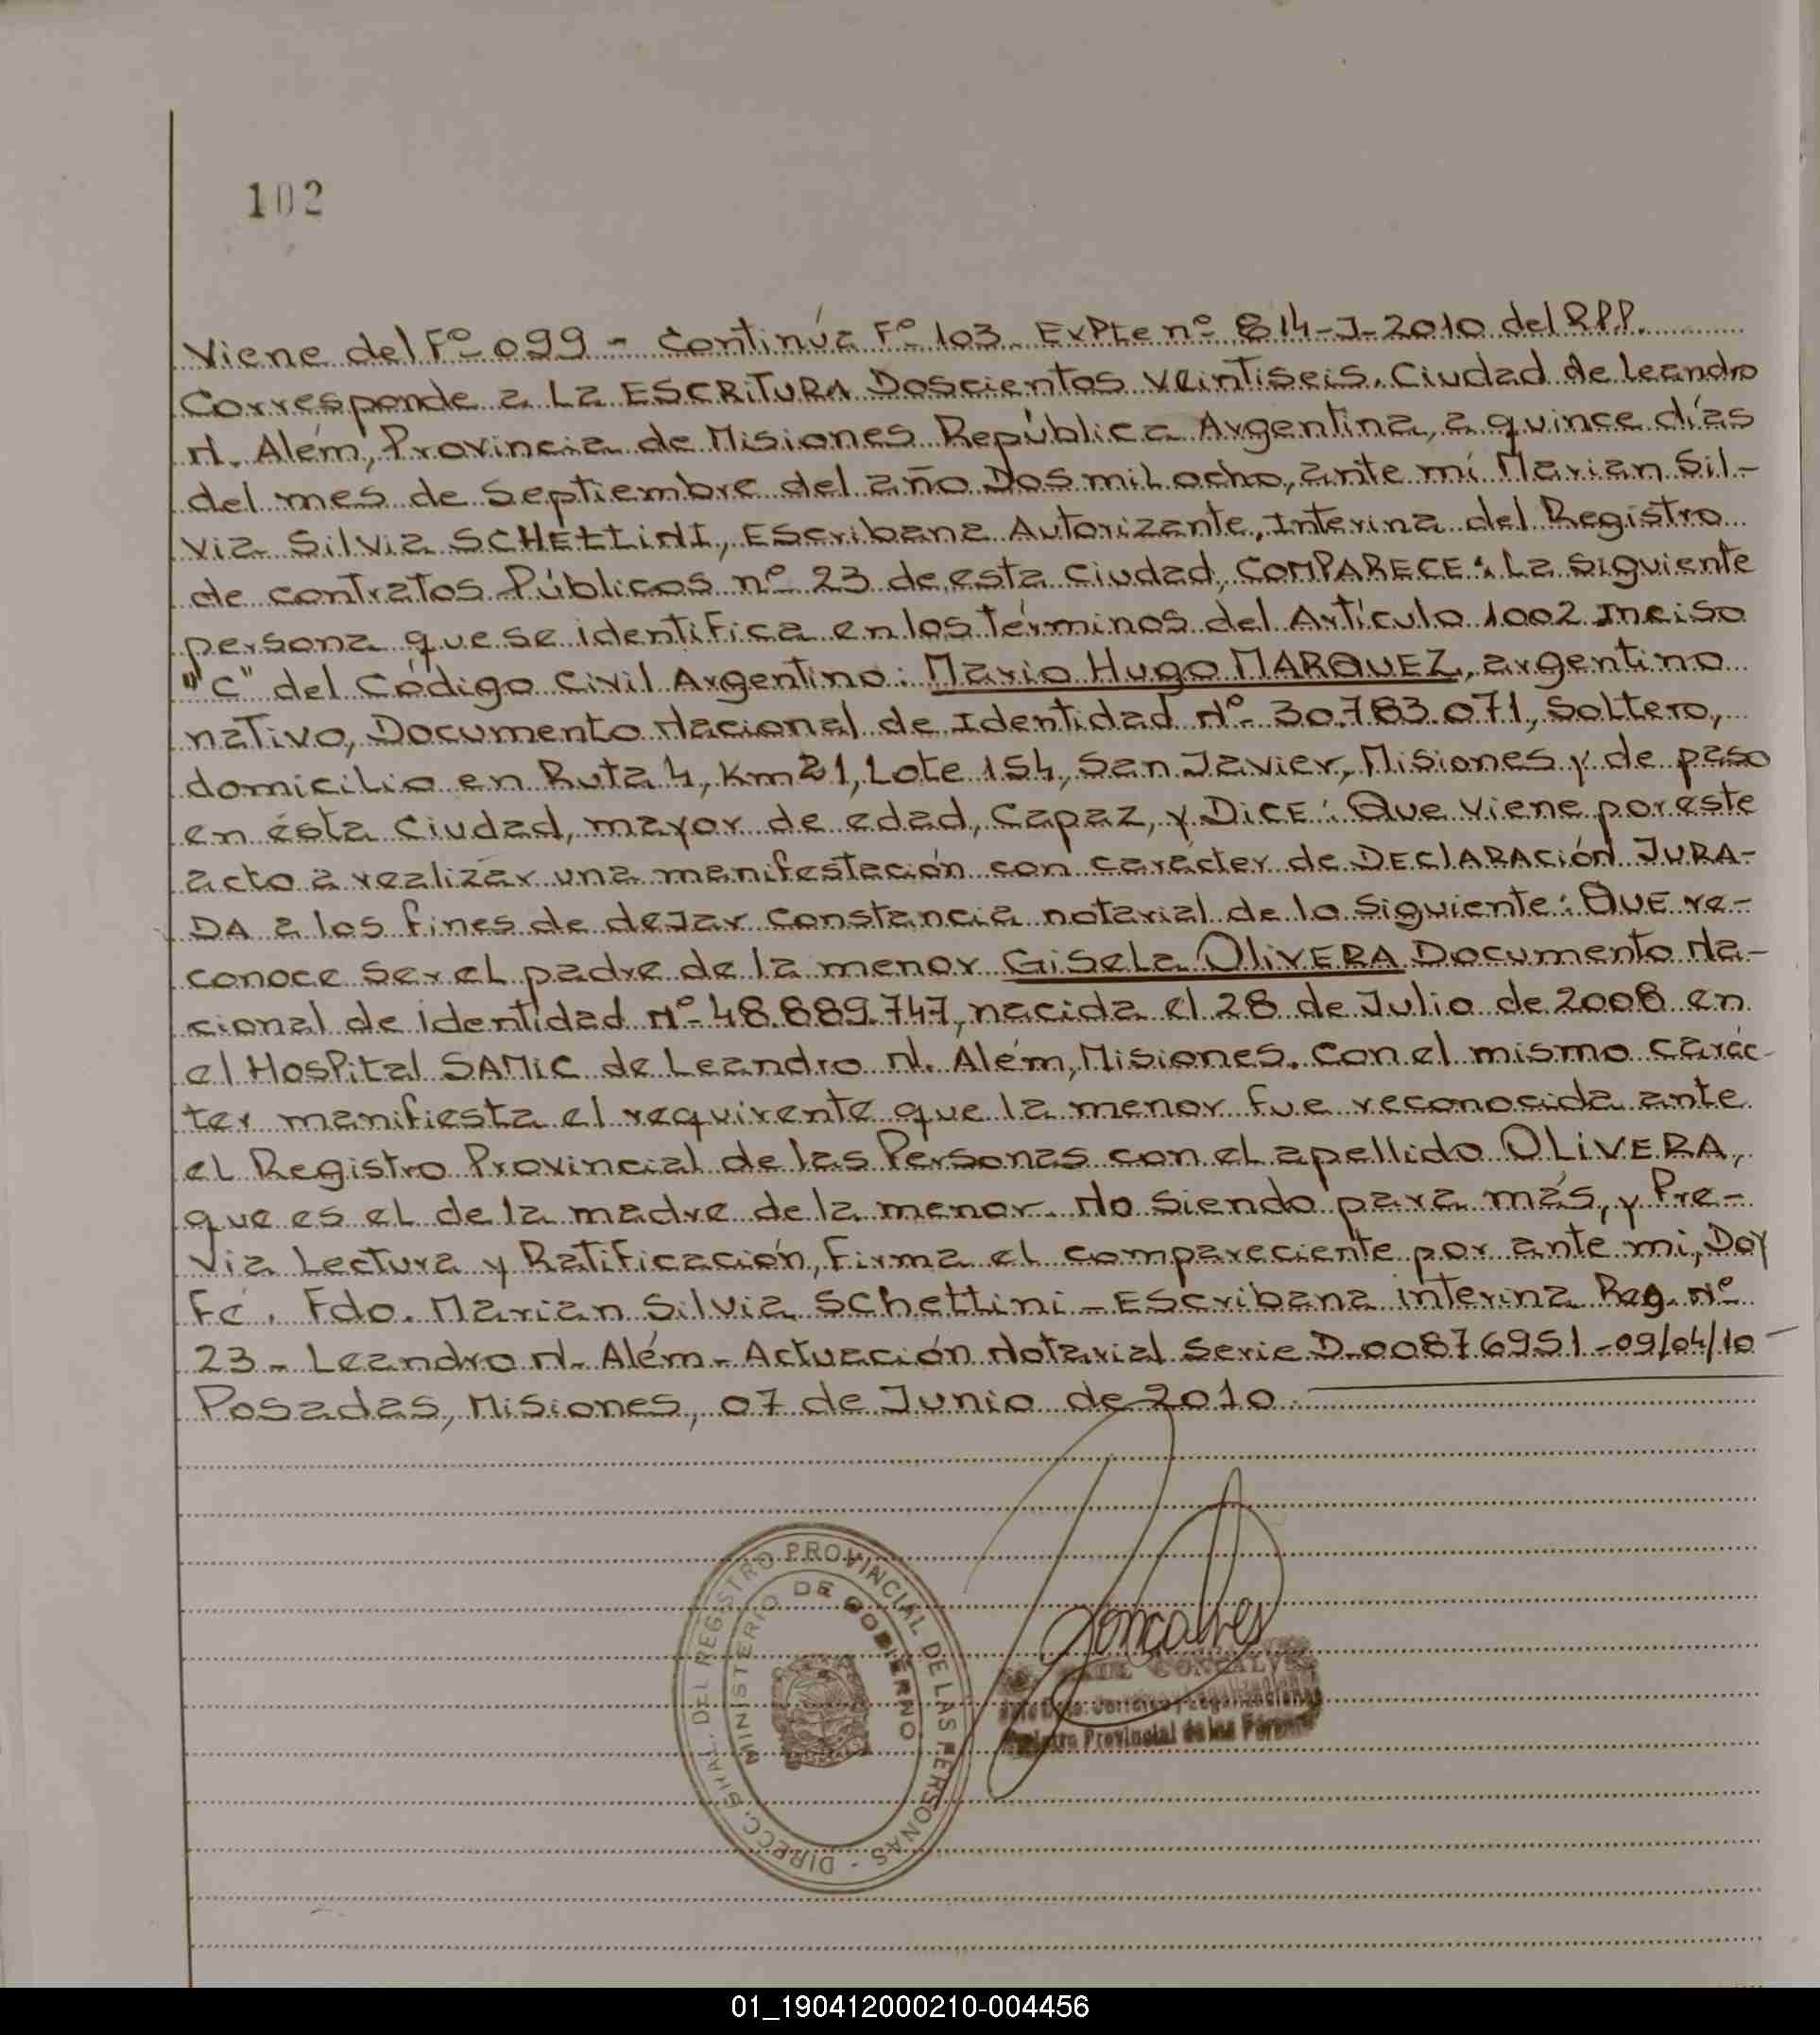 102
Viene del Fº 099 - Continúa Fº 103. ExPte nº 814-J-2010 del RPP.
Corresponde a La ESCRiTURA Doscientos veintiseis. Ciudad de Leandro
N. Alem, Provincia de Misiones República Argentina, a quince días
del mes de Septiembre del año Dos mil ocho, ante mí Marian Sil-
via Silvia SCHETTINI, Escribana Autorizante, Interina del Registro
de contratos Públicos nº 23 de esta ciudad, COMPARECE: La siguiente
persona que se identifica en los términos del Artículo 1002 Inciso
"c" del Código Civil Argentino: Mario Hugo MARQUEZ, argentino
nativo, Documento Nacional de Identidad Nº 30.783.071, Soltero,
domicilio en Ruta 4, Km 21, Lote 154, San Javier, Misiones y de paso
en ésta ciudad, mayor de edad, capaz, y DiCE: Que viene por este
acto a realizar una manifestación con carácter de DEClARACión JURA-
DA a los fines de dejar constancia notarial de lo siguiente: QUE re-
conoce ser el padre de la menor GiSeLa OliVERA Documento Na-
cional de identidad Nº 48.889.747, nacida el 28 de Julio de 2008 en
el Hospital SAMIC de Leandro N. Além, Misiones. Con el mismo carác-
ter manifiesta el requirente que la menor fue reconocida ante
el Registro Provincial de las Personas con el apellido OLiVERA,
que es el de la madre de la menor. No siendo para más, y Pre-
via Lectura y Ratificación, Firma el compareciente por ante mi, Doy
Fé. Fdo. Marian Silvia Schettini - Escribana interina Reg. Nº
23 - Leandro N. Além - Actuación Notarial Serie D-00876951 - 09/04/10
Posadas, Misiones, 07 de Junio de 2010.
DIRECC. GRAL. DEL REGISTRO PROVINCIAL DE LAS PERSONAS
MINISTERIO DE GOBIERNO
Goncalves
GONCALVES
Jurídico y Legalizaciones
Registro Provincial de las Personas
01_190412000210-004456